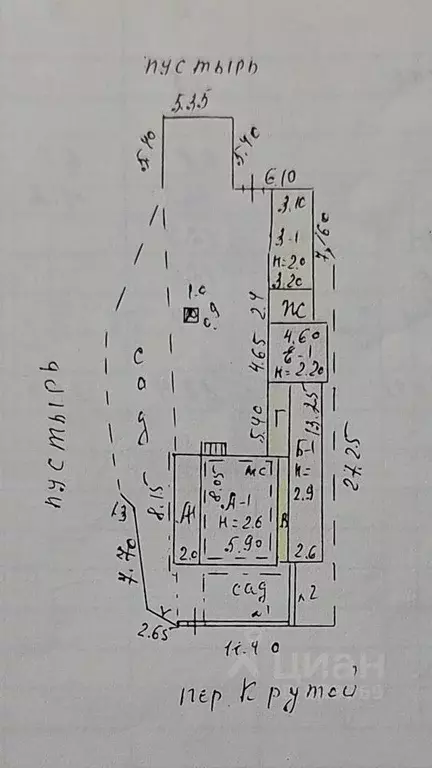 пустырь
5.35
5.40
5.40
6.10
3.10
3-1
н=2.0
3.20
7.60
1.0
0.9
2.4
ПС
4.65
4.60
Е-1
н=2.20
сад
пустырь
5.40
Г
Б-1
н=
2.9
13.25
27.25
8.15
8.05
мс
А-1
н=2.6
5.90
А1
2.0
В
2.6
13
7.70
сад
2
2.65
11.40
циан
пер. Крутой